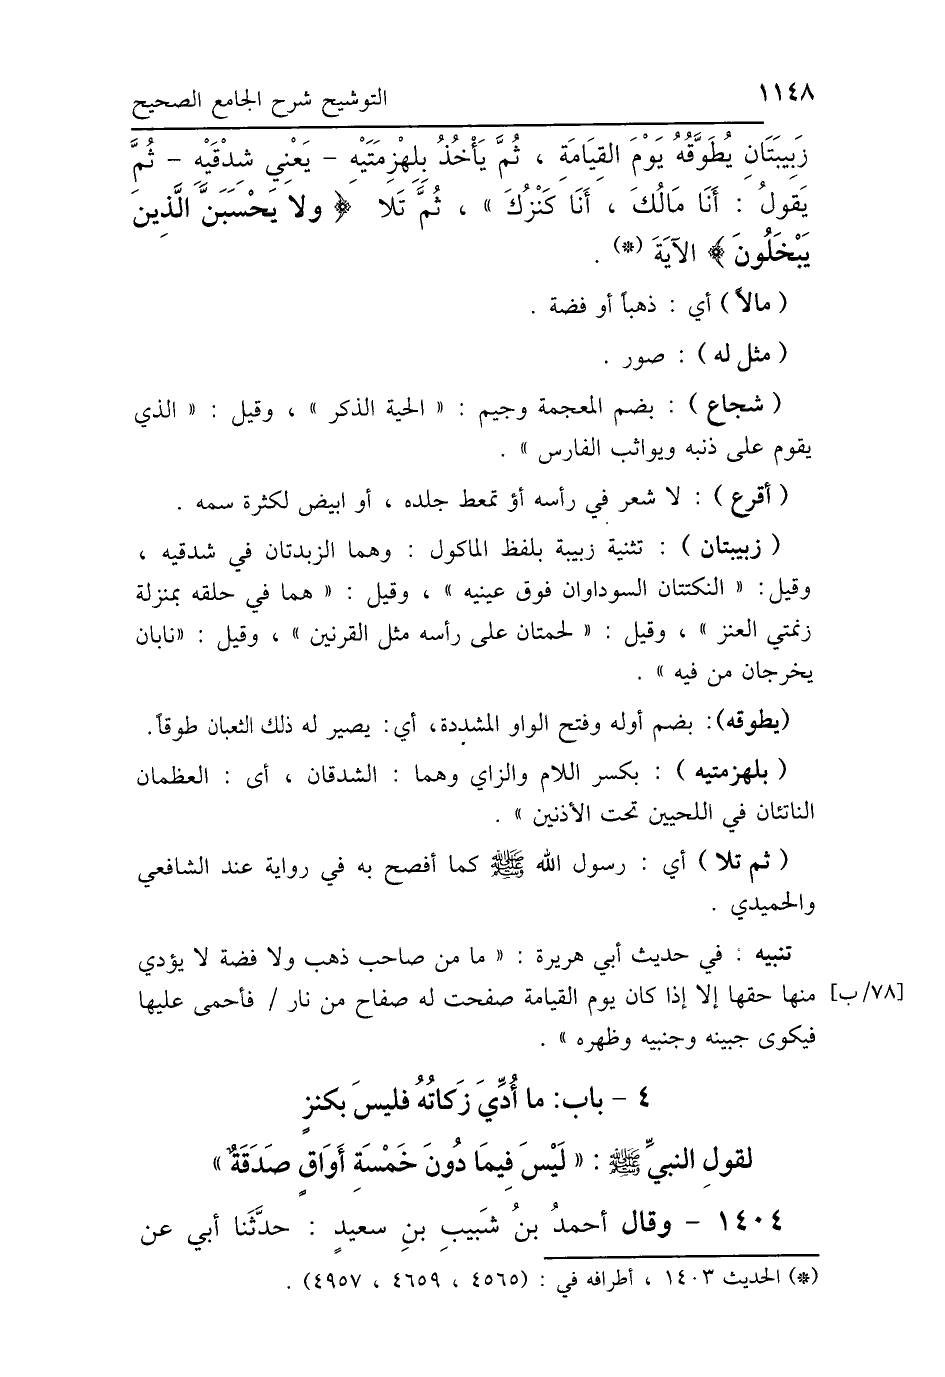 ١١٤٨ التوشيح شرح الجامع الصحيح
زَبِيبَتَانِ يُطَوَّقُهُ يَوْمَ القِيَامَةِ ، ثُمَّ يَأْخُذُ بِلِهْزِمَتَيْهِ – يَعْنِي شِدْقَيْهِ – ثُمَّ
يَقولُ : أَنَا مَالُكَ ، أَنَا كَنْزُكَ » ، ثُمَّ تَلا ﴿ ولا يَحْسَبَنَّ الَّذِينَ
يَبْخَلُونَ ﴾ الآيَةَ (*) .
( مالاً ) أي : ذهباً أو فضة .
( مثل له ) : صور .
( شجاع ) : بضم المعجمة وجيم : « الحية الذكر » ، وقيل : « الذي
يقوم على ذنبه ويواثب الفارس » .
( أقرع ) : لا شعر في رأسه أؤ تمعط جلده ، أو ابيض لكثرة سمه .
( زبيبتان ) : تثنية زبيبة بلفظ الماكول : وهما الزبدتان في شدقيه ،
وقيل: « النكتتان السوداوان فوق عينيه » ، وقيل : « هما في حلقه بمنزلة
زنمتي العنز » ، وقيل : « لحمتان على رأسه مثل القرنين » ، وقيل : «نابان
يخرجان من فيه » .
(يطوقه): بضم أوله وفتح الواو المشددة، أي: يصير له ذلك الثعبان طوقاً.
( بلهزمتيه ) : بكسر اللام والزاي وهما : الشدقان ، أى : العظمان
الناتئان في اللحيين تحت الأذنين » .
( ثم تلا ) أي : رسول الله ﷺ كما أفصح به في رواية عند الشافعي
والحميدي .
تنبيه : في حديث أبي هريرة : « ما من صاحب ذهب ولا فضة لا يؤدي
[٧٨/ب] منها حقها إلا إذا كان يوم القيامة صفحت له صفاح من نار / فأحمى عليها
فيكوى جبينه وجنبيه وظهره » .
٤ – باب: ما أُدِّيَ زَكاتُهُ فليسَ بكنزٍ
لقولِ النبيِّ ﷺ : « لَيْسَ فِيمَا دُونَ خَمْسَةِ أَوَاقٍ صَدَقَةٌ »
١٤٠٤ – وقال أحمدُ بنُ شَبيبِ بنِ سعيدٍ : حدَّثَنا أبي عن
(*) الحديث ١٤٠٣ ، أطرافه في : (٤٥٦٥ ، ٤٦٥٩ ، ٤٩٥٧) .